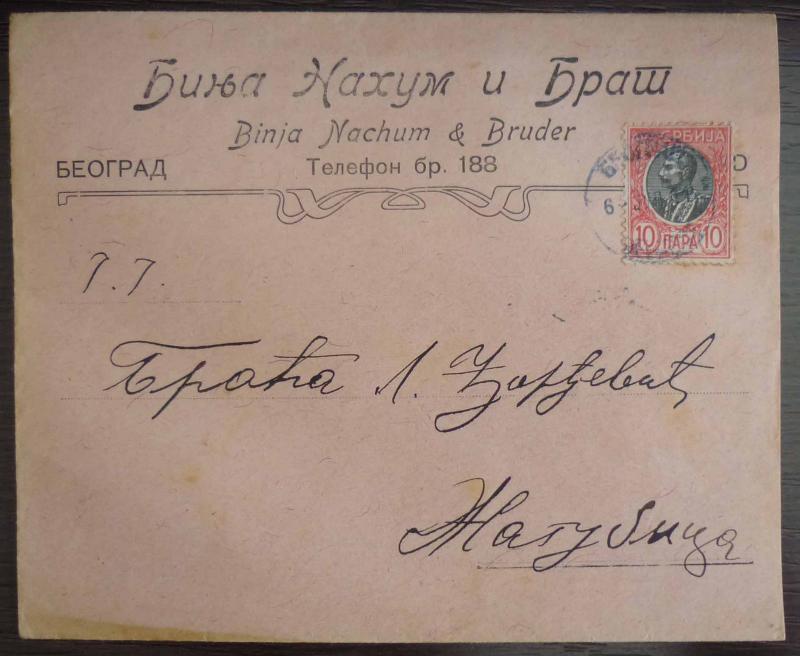 Биња Нахум и Брат
Binja Nachum & Bruder
БЕОГРАД Телефон бр. 188
СРБИЈА
10 ПАРА 10
Г. Г.
Браћа Л. Ђорђевић
Жагубица